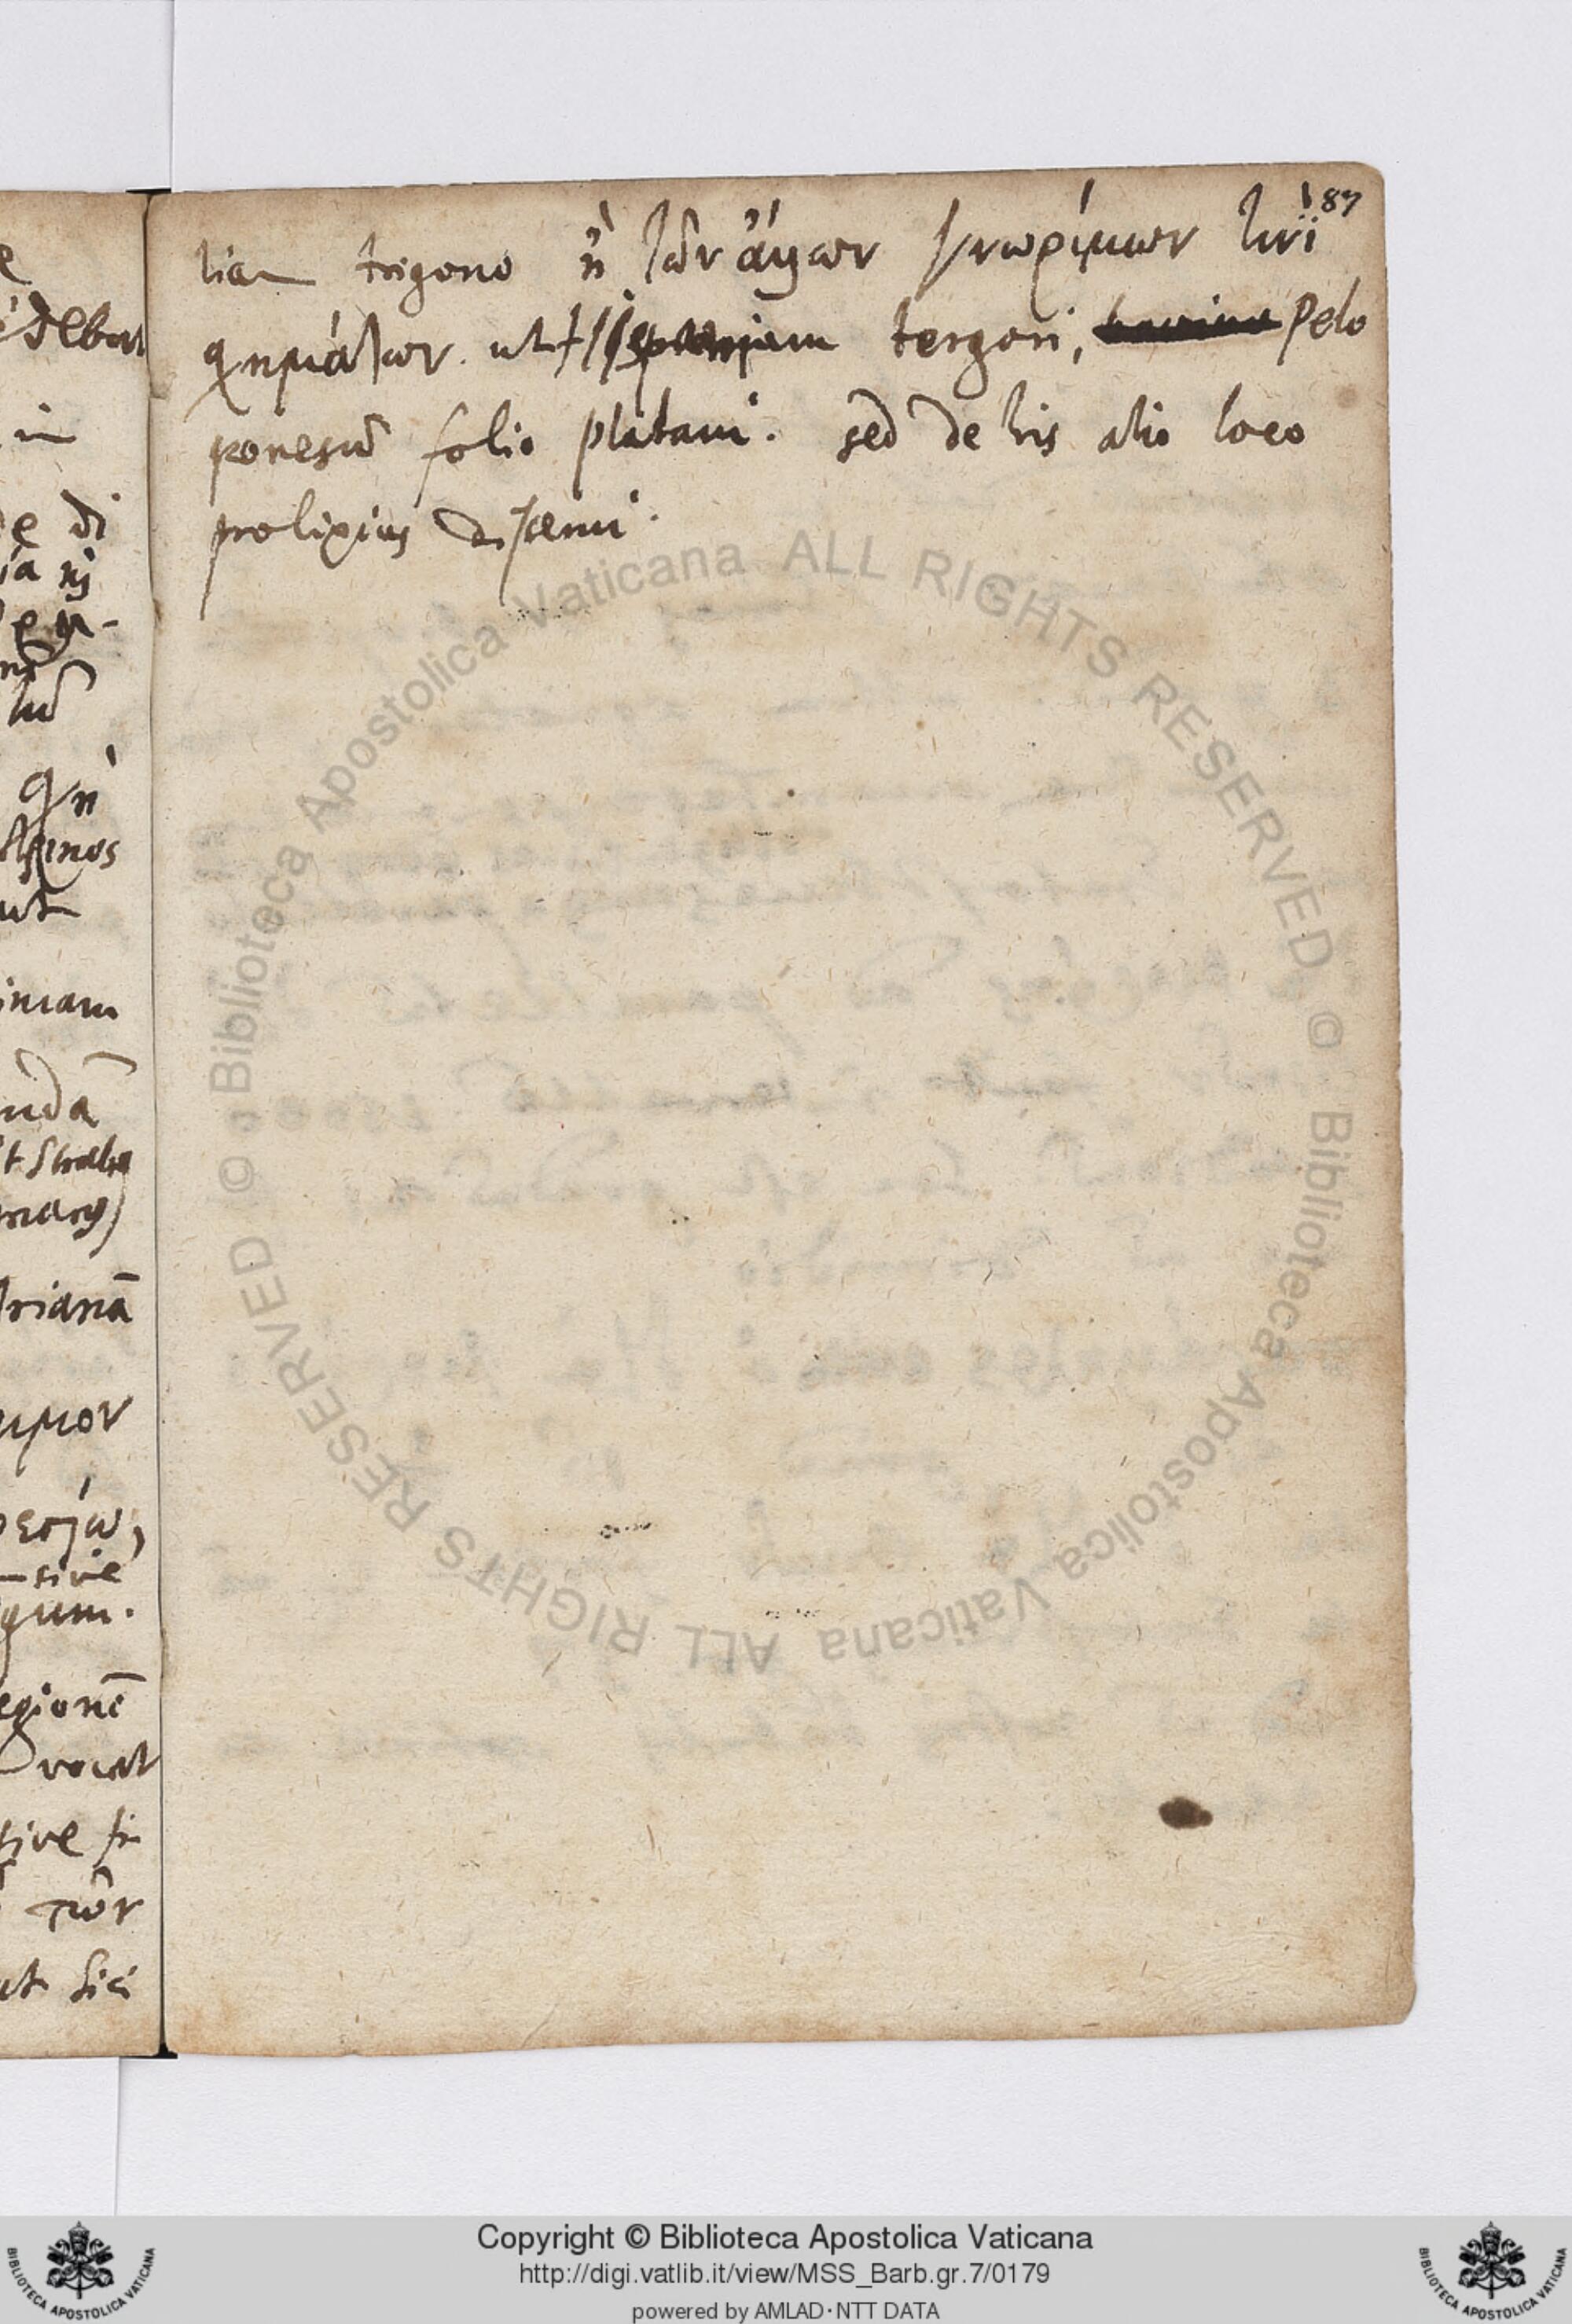 87
liam trigono ἢ τῶν ἄλλων γνωρίμων τινὶ
σχημάτων. ut Hispaniam tergori, Pelo
ponesũ folio platani. sed de his alio loco
prolixius
ẽ
debat
in
e di
ia
lũ
ut
iniam
ndã
t Strabo
trianã
ιμον
sive
gum.
egionẽ
vocat
sive
τῶν
ut Sici
© Biblioteca Apostolica Vaticana ALL RIGHTS RESERVED
© Biblioteca Apostolica Vaticana ALL RIGHTS RESERVED
Copyright © Biblioteca Apostolica Vaticana
http://digi.vatlib.it/view/MSS_Barb.gr.7/0179
powered by AMLAD·NTT DATA
BIBLIOTECA APOSTOLICA VATICANA
BIBLIOTECA APOSTOLICA VATICANA